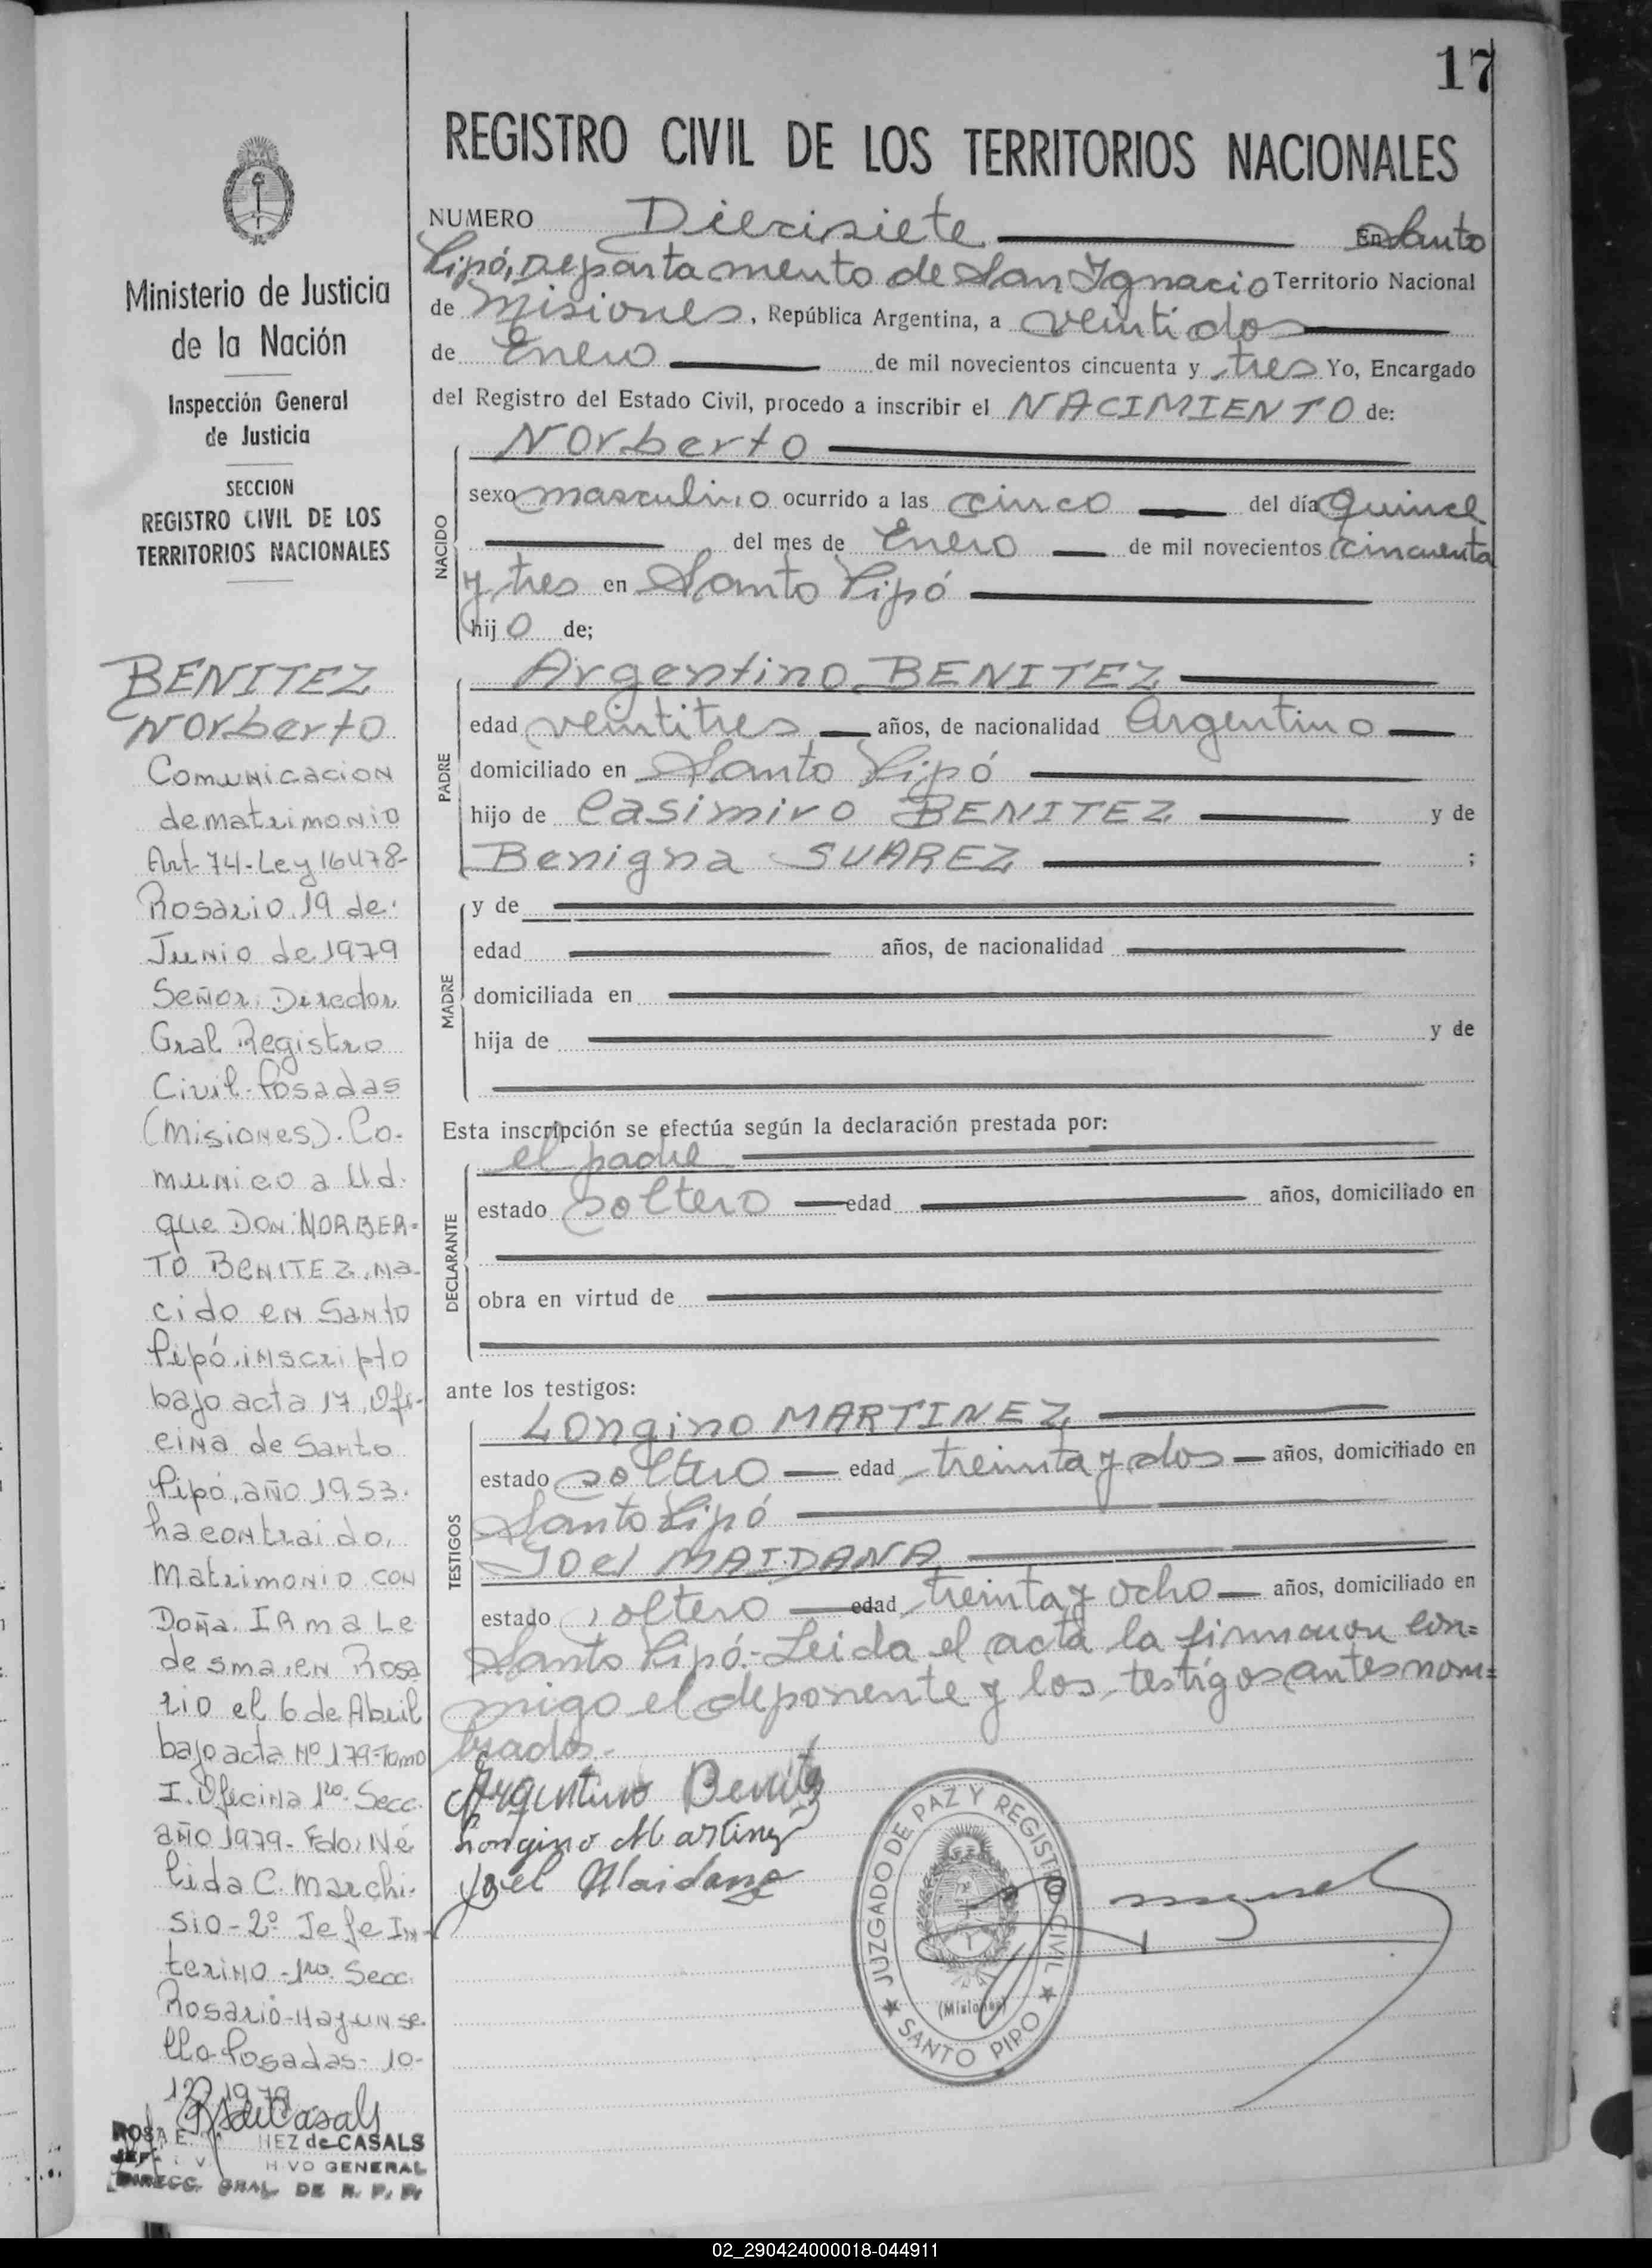 17
REGISTRO CIVIL DE LOS TERRITORIOS NACIONALES
NUMERO Diecisiete En Santo
Pipó, Departamento de San Ignacio Territorio Nacional
de Misiones, República Argentina, a veintidos
de Enero de mil novecientos cincuenta y tres Yo, Encargado
del Registro del Estado Civil, procedo a inscribir el NACIMIENTO de:
Norberto
NACIDO
sexo masculino ocurrido a las cinco del día quince
del mes de Enero de mil novecientos cincuenta
y tres en Santo Pipó
hijo de;
Argentino BENITEZ
PADRE
edad veintitres años, de nacionalidad Argentino
domiciliado en Santo Pipó
hijo de Casimiro BENITEZ y de
Benigna SUAREZ ;
MADRE
y de
edad años, de nacionalidad
domiciliada en
hija de y de
Esta inscripción se efectúa según la declaración prestada por:
el padre
DECLARANTE
estado soltero edad años, domiciliado en
obra en virtud de
ante los testigos:
Longino MARTINEZ
TESTIGOS
estado soltero edad treinta y dos años, domiciliado en
Santo Pipó
Joel MAIDANA
estado soltero edad treinta y ocho años, domiciliado en
Santo Pipó.- Leida el acta la firmaron con=
migo el deponente y los testigos antes nom=
brados.-
Argentino Benitez
Longino Martinez
Joel Maidana
JUZGADO DE PAZ Y REGISTRO CIVIL
(Misiones)
★ SANTO PIPO ★
Ministerio de Justicia
de la Nación
Inspección General
de Justicia
SECCION
REGISTRO CIVIL DE LOS
TERRITORIOS NACIONALES
BENITEZ
Norberto
Comunicacion
de matrimonio
Art-74-Ley 16478-
Rosario 19 de
Junio de 1979
Señor Director
Gral Registro
Civil-Posadas
(Misiones). Co-
munico a Ud.
que DON NORBER-
TO BENITEZ, na-
cido en Santo
Pipó, inscripto
bajo acta 17, Ofi-
cina de Santo
Pipó, año 1953.
ha contraido,
matrimonio con
Doña. IRma Le
desma, en Rosa
rio el 6 de Abril
bajo acta Nº 179-Tomo
I. Oficina 1ra. Secc.
año 1979- Fdo: Né
lida C. Marchi-
sio-2º Jefe In-
terino-1ra. Secc.
Rosario-Hay un se-
llo-Posadas-10-
12-1979
ROSA E. de CASALS
GENERAL
DIRECC. GRAL DE R. P. P.
02_290424000018-044911